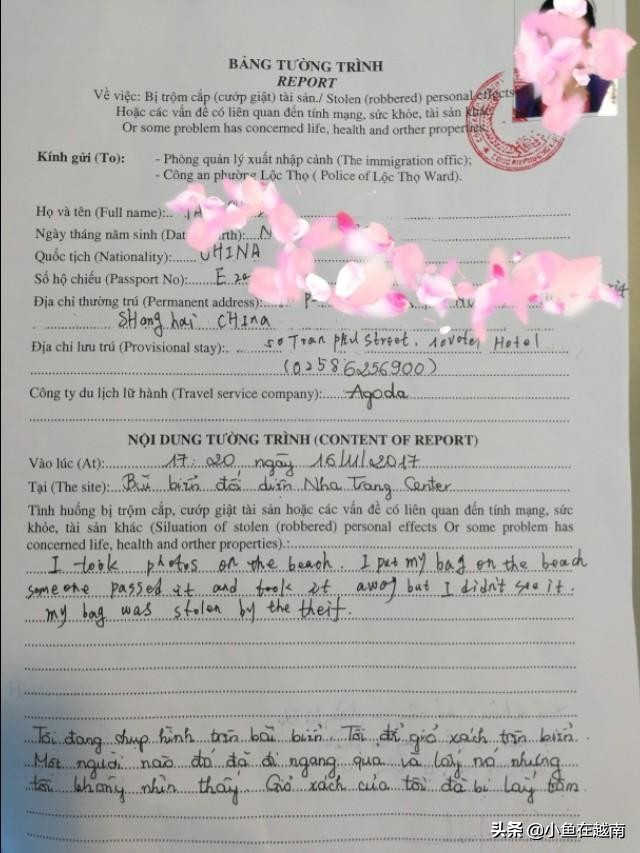 BẢNG TƯỜNG TRÌNH
REPORT
Về việc: Bị trộm cắp (cướp giật) tài sản./ Stolen (robbered) personal effects
Hoặc các vấn đề có liên quan đến tính mạng, sức khỏe, tài sản khác
Or some problem has concerned life, health and orther properties.
Kính gửi (To): - Phòng quản lý xuất nhập cảnh (The immigration offic);
- Công an phường Lộc Thọ ( Police of Lộc Thọ Ward).
Họ và tên (Full name):
Ngày tháng năm sinh (Dat
Quốc tịch (Nationality): CHINA
Số hộ chiếu (Passport No): E 29
Địa chỉ thường trú (Permanent address): P-
Shanghai CHINA
Địa chỉ lưu trú (Provisional stay): 50 Tran phu street, Novotel Hotel
(02586256900)
Công ty du lịch lữ hành (Travel service company): Agoda
NỘI DUNG TƯỜNG TRÌNH (CONTENT OF REPORT)
Vào lúc (At): 17:20 ngày 16/11/2017
Tại (The site): Bãi biển đối diện Nha Trang Center
Tình huống bị trộm cắp, cướp giật tài sản hoặc các vấn đề có liên quan đến tính mạng, sức
khỏe, tài sản khác (Siluation of stolen (robbered) personal effects Or some problem has
concerned life, health and orther properties).:
I took photos on the beach. I put my bag on the beach
someone passed it and took it away but I didn't see it.
my bag was stolen by the theif.
Tôi đang chụp hình trên bãi biển. Tôi để giỏ xách trên biển.
Một người nào đó đã đi ngang qua và lấy nó nhưng
tôi không nhìn thấy. Giỏ xách của tôi đã bị lấy trộm.
头条 @小鱼在越南